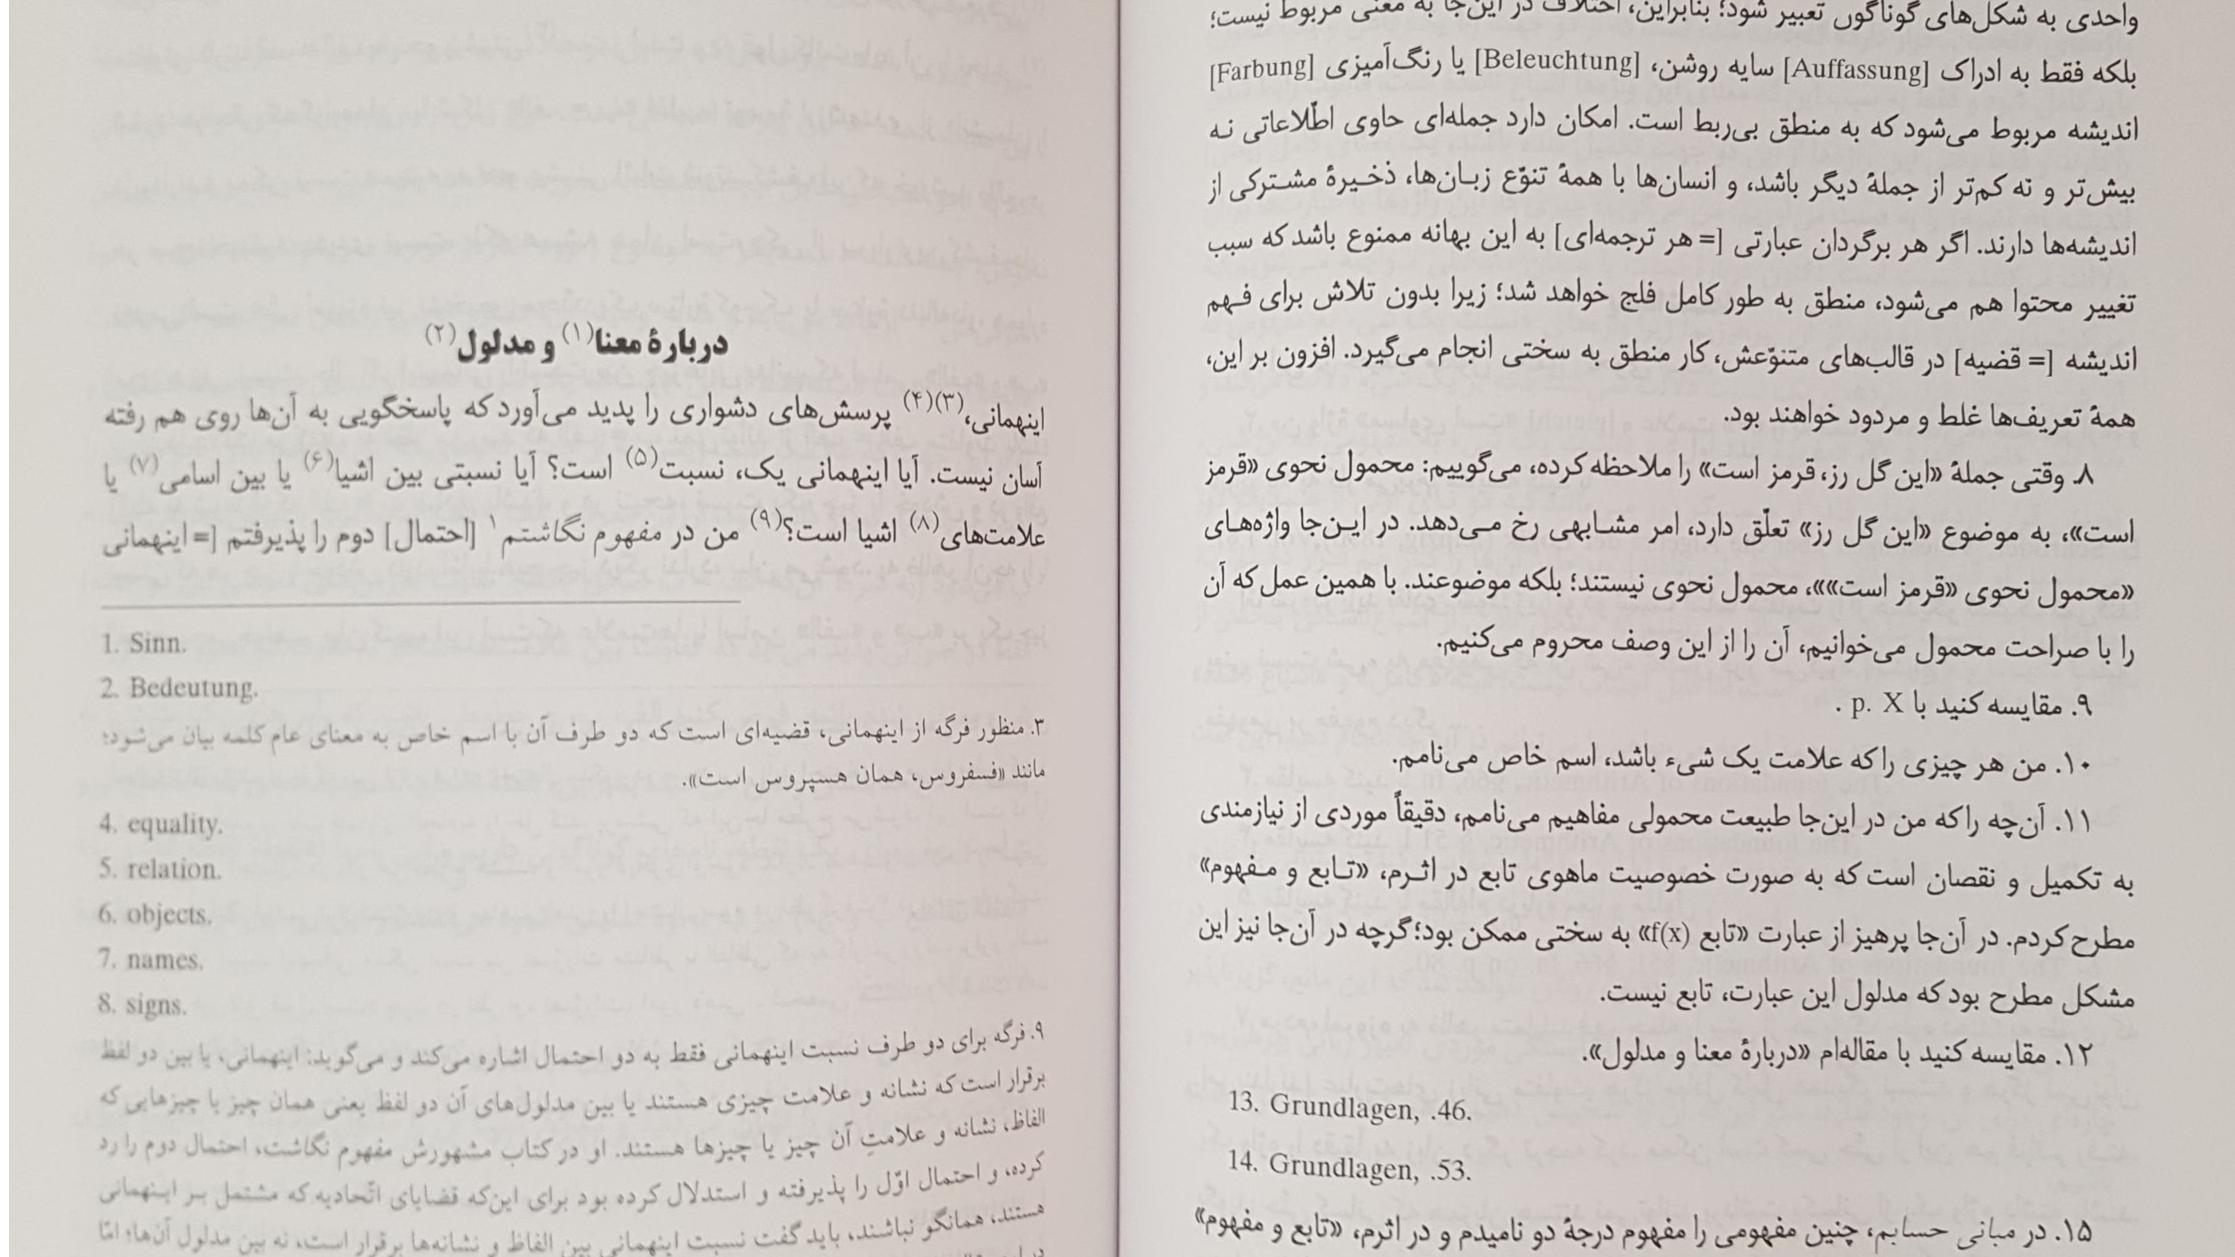 واحدی به شکل‌های گوناگون تعبیر شود؛ بنابراین، اختلاف در این‌جا به معنی مربوط نیست؛
بلکه فقط به ادراک [Auffassung] سایه روشن، [Beleuchtung] یا رنگ‌آمیزی [Farbung]
اندیشه مربوط می‌شود که به منطق بی‌ربط است. امکان دارد جمله‌ای حاوی اطّلاعاتی نه
بیش‌تر و نه کم‌تر از جملهٔ دیگر باشد، و انسان‌ها با همهٔ تنوّع زبان‌ها، ذخیرهٔ مشترکی از
اندیشه‌ها دارند. اگر هر برگردان عبارتی [= هر ترجمه‌ای] به این بهانه ممنوع باشد که سبب
تغییر محتوا هم می‌شود، منطق به طور کامل فلج خواهد شد؛ زیرا بدون تلاش برای فهم
اندیشه [= قضیه] در قالب‌های متنوّعش، کار منطق به سختی انجام می‌گیرد. افزون بر این،
همهٔ تعریف‌ها غلط و مردود خواهند بود.
۸. وقتی جملهٔ «این گل رز، قرمز است» را ملاحظه کرده، می‌گوییم: محمول نحوی «قرمز
است»، به موضوع «این گل رز» تعلّق دارد، امر مشابهی رخ می‌دهد. در این‌جا واژه‌های
«محمول نحوی «قرمز است»»، محمول نحوی نیستند؛ بلکه موضوعند. با همین عمل که آن
را با صراحت محمول می‌خوانیم، آن را از این وصف محروم می‌کنیم.
۹. مقایسه کنید با p. X .
۱۰. من هر چیزی را که علامت یک شیء باشد، اسم خاص می‌نامم.
۱۱. آن‌چه را که من در این‌جا طبیعت محمولی مفاهیم می‌نامم، دقیقاً موردی از نیازمندی
به تکمیل و نقصان است که به صورت خصوصیت ماهوی تابع در اثرم، «تابع و مفهوم»
مطرح کردم. در آن‌جا پرهیز از عبارت «تابع f(x)» به سختی ممکن بود؛ گرچه در آن‌جا نیز این
مشکل مطرح بود که مدلول این عبارت، تابع نیست.
۱۲. مقایسه کنید با مقاله‌ام «دربارهٔ معنا و مدلول».
13. Grundlagen, .46.
14. Grundlagen, .53.
۱۵. در مبانی حسابم، چنین مفهومی را مفهوم درجهٔ دو نامیدم و در اثرم، «تابع و مفهوم»
دربارهٔ معنا(۱) و مدلول(۲)
اینهمانی،(۳)(۴) پرسش‌های دشواری را پدید می‌آورد که پاسخگویی به آن‌ها روی هم رفته
آسان نیست. آیا اینهمانی یک، نسبت(۵) است؟ آیا نسبتی بین اشیا(۶) یا بین اسامی(۷) یا
علامت‌های(۸) اشیا است؟(۹) من در مفهوم نگاشتم۱ [احتمال] دوم را پذیرفتم [= اینهمانی
1. Sinn.
2. Bedeutung.
۳. منظور فرگه از اینهمانی، قضیه‌ای است که دو طرف آن با اسم خاص به معنای عام کلمه بیان می‌شود؛
مانند «فسفروس، همان هسپروس است».
4. equality.
5. relation.
6. objects.
7. names.
8. signs.
۹. فرگه برای دو طرف نسبت اینهمانی فقط به دو احتمال اشاره می‌کند و می‌گوید: اینهمانی، یا بین دو لفظ
برقرار است که نشانه و علامت چیزی هستند یا بین مدلول‌های آن دو لفظ یعنی همان چیز یا چیزهایی که
الفاظ، نشانه و علامتِ آن چیز یا چیزها هستند. او در کتاب مشهورش مفهوم نگاشت، احتمال دوم را رد
کرده، و احتمال اوّل را پذیرفته و استدلال کرده بود برای این‌که قضایای اتّحادیه که مشتمل بر اینهمانی
هستند، همانگو نباشند، باید گفت نسبت اینهمانی بین الفاظ و نشانه‌ها برقرار است، نه بین مدلول آن‌ها؛ امّا